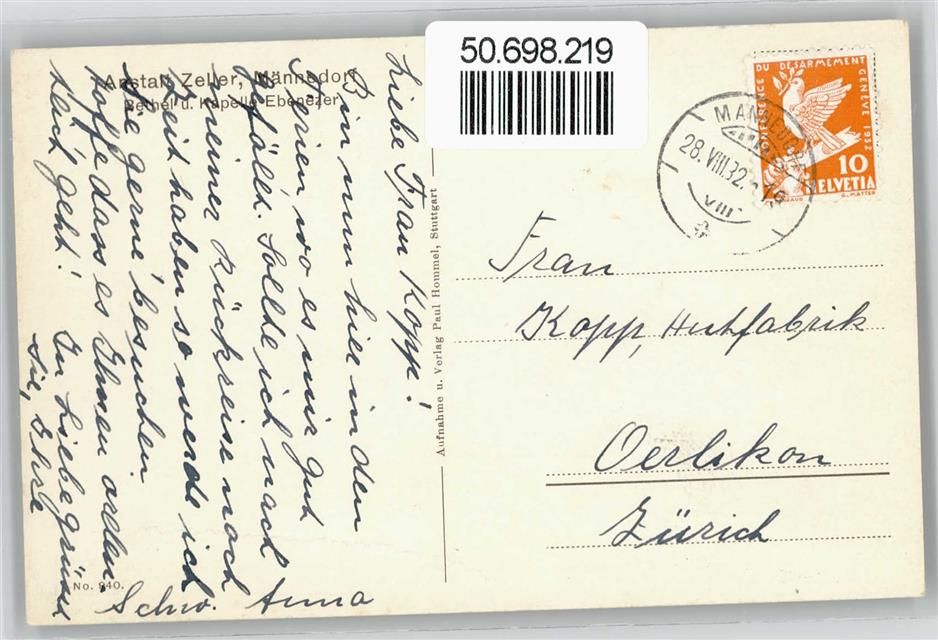 50.698.219
Anstalt Zeller, Männedorf
Bethel u. Kapelle Ebenezer
Liebe Frau Kopp!
Bin nun hier in den
Ferien wo es mir gut
gefällt. Sollte ich nach
meiner Rückreise noch
Zeit haben so werde ich
Sie gerne besuchen.
Hoffe dass es Ihnen allen
recht geht! In Liebe grüsst
Sie, Ihre
Schw. Anna
No. 940.
Aufnahme u. Verlag Paul Hommel, Stuttgart
CONFERENCE DU DESARMEMENT GENÈVE 1932
10
HELVETIA
G. MATTER
MÄNNEDORF
28.VIII.32.
VIII
Frau
Kopp, Hutfabrik
Oerlikon
Zürich